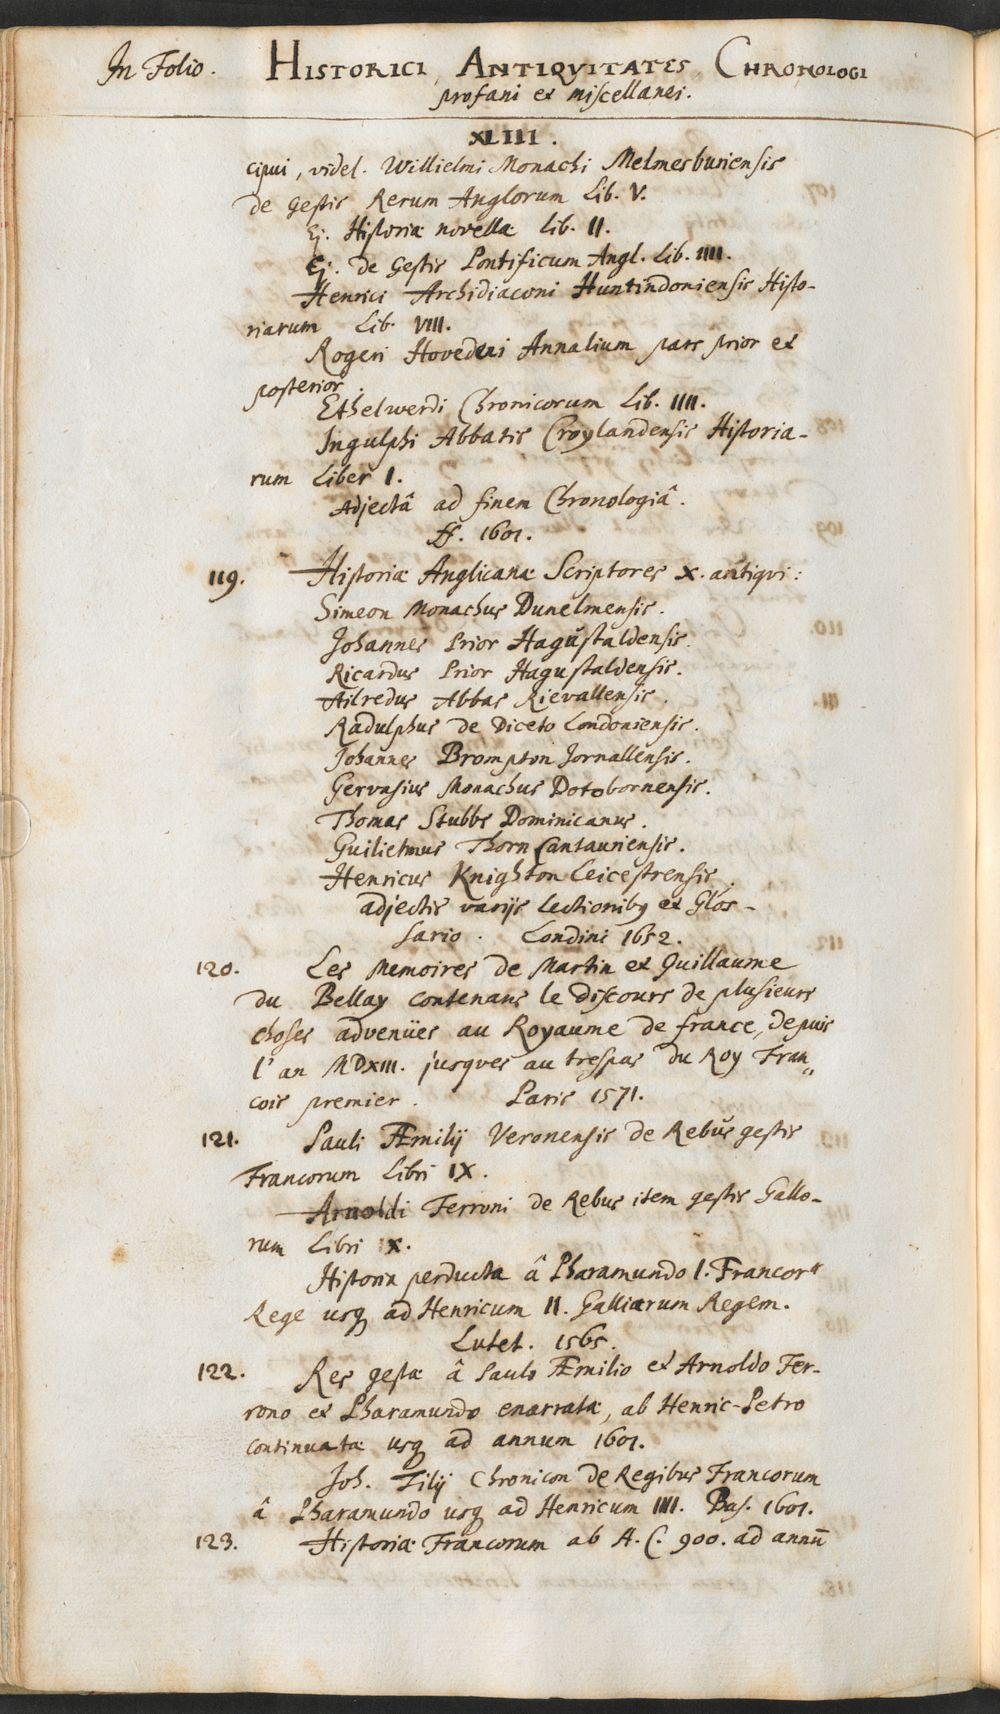 In Folio. HISTORICI, ANTIQVITATES, CHRONOLOGI
profani et miscellanei.
XLIII.
cipui, videl. Willielmi Monachi Melmesburiensis
de gestis Rerum Anglorum Lib. V.
Ej. Historiæ novellæ Lib. II.
Ej. de Gestis Pontificum Angl. Lib. IIII.
Henrici Archidiaconi Huntindoniensis Histo-
riarum Lib. VIII.
Rogeri Hovedeni Annalium pars prior et
posterior.
Ethelwerdi Chronicorum Lib. IIII.
Ingulphi Abbatis Croylandensis Historia-
rum Liber I.
Adjectâ ad finem Chronologiâ.
ff. 1601.
119. Historiæ Anglicanæ Scriptores X. antiqvi:
Simeon Monachus Dunelmensis.
Johannes Prior Hagustaldensis.
Ricardus Prior Hagustaldensis.
Ailredus Abbas Rievallensis.
Radulphus de Diceto Londoniensis.
Johannes Brompton Jornallensis.
Gervasius Monachus Dorobornensis.
Thomas Stubbs Dominicanus.
Guilielmus Thorn Cantauriensis.
Henricus Knighton Leicestrensis.
adjectis varijs Lectionibq et Glos-
sario. Londini 1652.
120. Les Memoires de Martin et Guillaume
du Bellay contenans le discours de plusieurs
choses advenües au Royaume de france, depuis
l'an MDXIII. jusques au trespas du Roy Fran„
cois premier. Paris 1571.
121. Pauli Æmilij Veronensis de Rebus gestis
Francorum Libri IX.
Arnoldi Ferroni de Rebus item gestis Gallo-
rum Libri IX.
Historia perducta â Pharamundo I. Francor
Rege usq ad Henricum II. Galliarum Regem.
Lutet. 1565.
122. Res gestæ â Paulo Æmilio et Arnoldo Fer-
rono et Pharamundo enarratæ, ab Henric-Petro
continuatæ usq ad annum 1601.
Joh. Tilij Chronicon de Regibus Francorum
â Pharamundo usq ad Henricum IIII. Bas. 1601.
123. Historiæ Francorum ab A. C. 900. ad annū